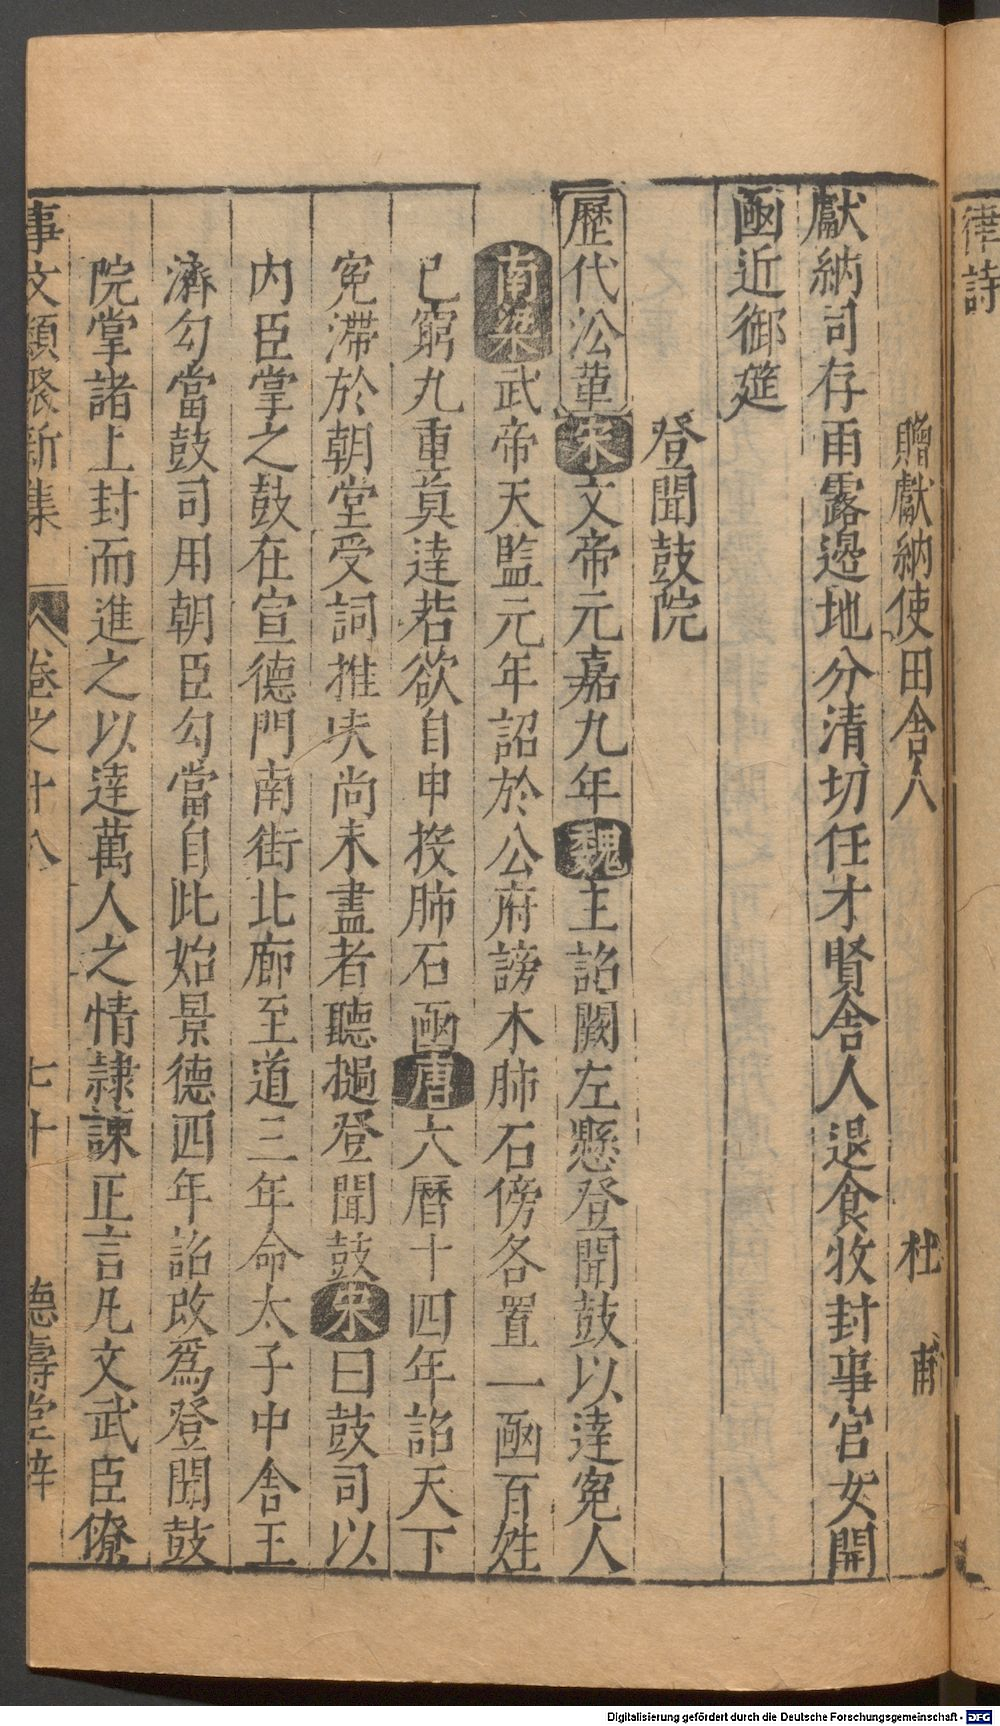 律詩
贈獻納使田舍人　杜甫
獻納司存雨露邊地分清切任才賢舍人退食收封事官女開
凾近御筵
登聞鼓院
歷代㳂革宋文帝元嘉九年魏主詔闕左懸登聞鼓以達寃人
南梁武帝天監元年詔於公府謗木肺石傍各置一凾百姓
已窮九重莫達若欲自申投肺石凾唐六曆十四年詔天下
寃滯於朝堂受詞推決尚未盡者聽撾登聞鼓宋曰鼓司以
内臣掌之鼓在宣德門南街北廊至道三年命太子中舍王
濟勾當鼓司用朝臣勾當自此始景德四年詔改爲登聞鼓
院掌諸上封而進之以達萬人之情隷諫正言凡文武臣僚
事文類聚新集　卷之十八　七十　德壽堂梓
Digitalisierung gefördert durch die Deutsche Forschungsgemeinschaft - DFG